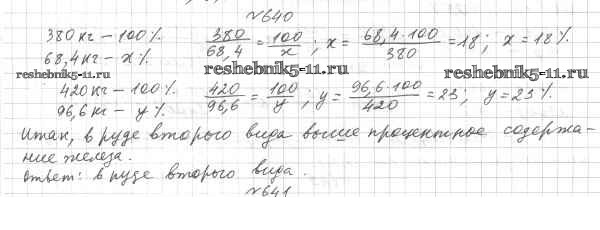 №640
380 кг – 100% 380/68,4 = 100/x ; x = 68,4·100/380 = 18; x = 18%.
68,4 кг – x%.
reshebnik5-11.ru reshebnik5-11.ru reshebnik5-11.ru
420 кг – 100%. 420/96,6 = 100/y ; y = 96,6·100/420 = 23; y = 23%.
96,6 кг – y%.
Итак, в руде второго вида выше процентное содержа-
ние железа.
Ответ: в руде второго вида.
№641